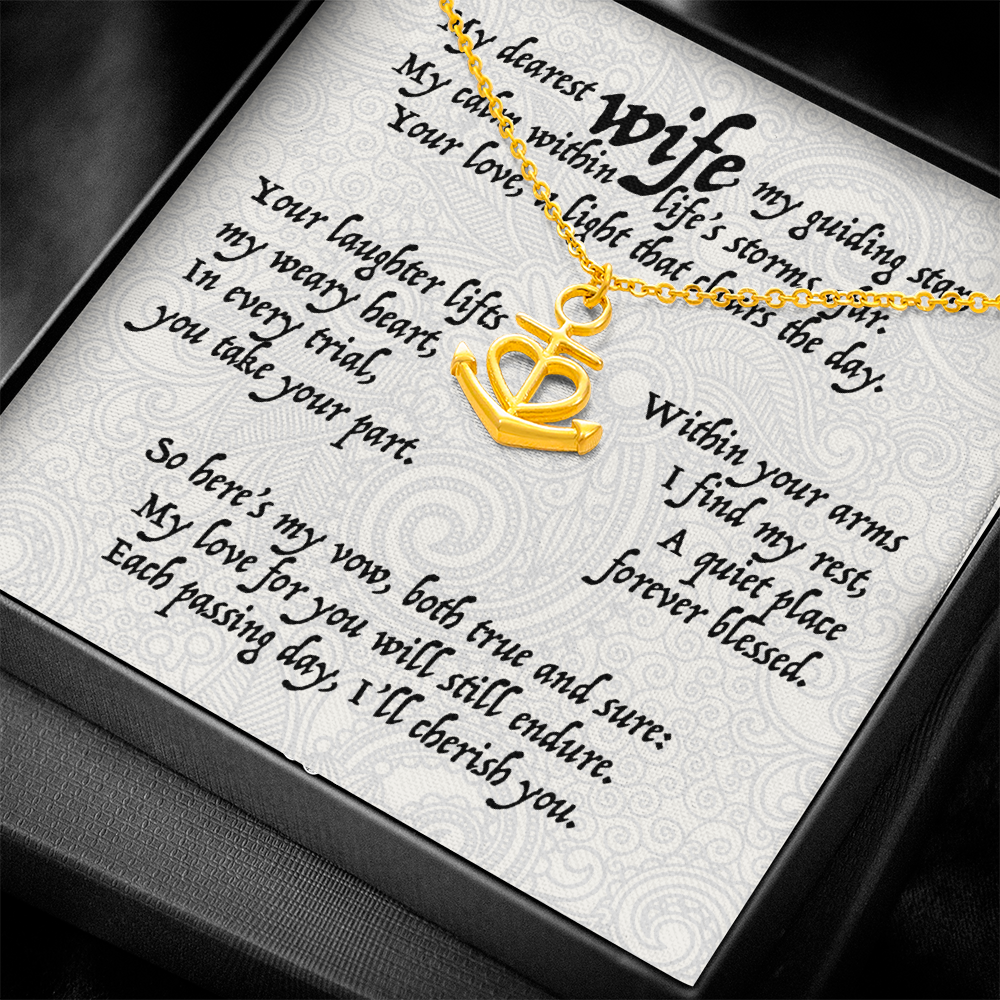 My dearest wife, my guiding star,
My calm within life's storms afar.
Your love, a light that clears the day.
Your laughter lifts
my weary heart,
In every trial,
you take your part.
Within your arms
I find my rest,
A quiet place
forever blessed.
So here's my vow, both true and sure:
My love for you will still endure.
Each passing day, I'll cherish you.